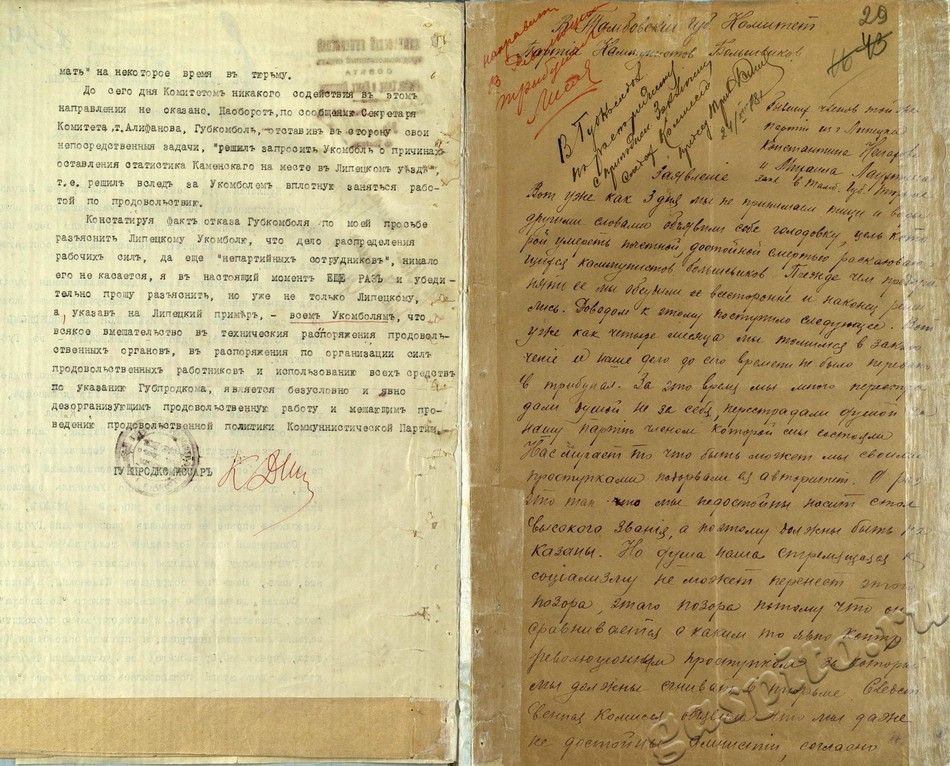 мать" на некоторое время въ тюрьму.
До сего дня Комитетомъ никакого содействия въ этомъ
направлении не оказано. Наоборотъ, по сообщению Секретаря
Комитета, т. Алифанова, Губкомболъ, отставивъ въ сторону свои
непосредственныя задачи, "решилъ запросить Укомболъ о причинахъ
оставления статистика Каменскаго на месте въ Липецкомъ уездѣ",
т.е. решил вследъ за Укомболемъ вплотную заняться рабо-
той по продовольствию.
Констатируя фактъ отказа Губкомболя по моей просьбе
разъяснить Липецкому Укомболю, что дело распределения
рабочихъ силъ, да еще "непартийныхъ сотрудниковъ", нимало
его не касается, я въ настоящий моментъ ЕЩЕ РАЗЪ и убеди-
тельно прошу разъяснить, но уже не только Липецкому,
а, указавъ на Липецкий примѣръ, - всемъ Укомболямъ, что
всякое вмешательство въ технический распоряжения продоволь-
ственныхъ органовъ, въ распоряжения по организации силъ
продовольственныхъ работников и использованию всехъ средствъ
по указанию Губпродкома, является безусловно и явно
дезорганизующимъ продовольственную работу и мешающимъ про-
ведению продовольственной политики Коммуннистической Партии.
ГУБПРОДКОМИССАРЪ
29
43
В Тамбовскій Губ. Комитет
Партіи Комунистов Большевиков.
направит
в
трибунал
24/VIII
Бывших членов той же
партіи
Константина
и Михаила
Заявленіе
Вот уже как 3 дня мы не принимаем пищи а
другими словами обьявили себе голодовку, цель кото
рой умереть почетной, достойной смертью
комунистов большевиков. Прежде чем
нять ее мы обсудили ее всесторонне и наконец реши
лись. Доводом к этому поступило следующее. Вот
уже как четыре месяца мы томимся в заклю
чение и наше дело до сего времени не было передано
в трибунал. За это время мы много перестра
дали душой не за себя, перестрадали душой за
нашу партію членом которой мы состояли
Нас мучает то что быть может мы своими
проступками подорвали ея авторитет. И раз
это так то мы недостойны носит столь
высокого званія, а поэтому должны быть на
казаны. Но душа наша стремящаяся к
социализму не может перенест этого
позора, этаго позора потому что он
сравнивается с каким то явно контр
революціонным проступком за который
мы должны сгнивать в тюрьме Следст
венная Комиссія обявила что мы даже
не достойны амнистіи, согласно
gaspito.ru